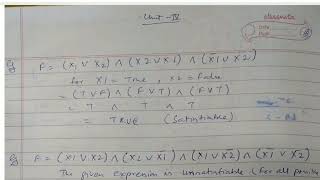 Unit - IV
classmate
Date
Page
F = (x1 ∨ x2) ∧ (x2 ∨ x1) ∧ (x̄1 ∨ x2)
for x1 = True, x2 = False
= (T ∨ F) ∧ (F ∨ T) ∧ (F ∨ T)
= T ∧ T ∧ T
= TRUE (Satisfiable)
F = (x1 ∨ x2) ∧ (x2 ∨ x̄1) ∧ (x1 ∨ x̄2) ∧ (x̄1 ∨ x̄2)
The given expression is unsatisfiable (for all